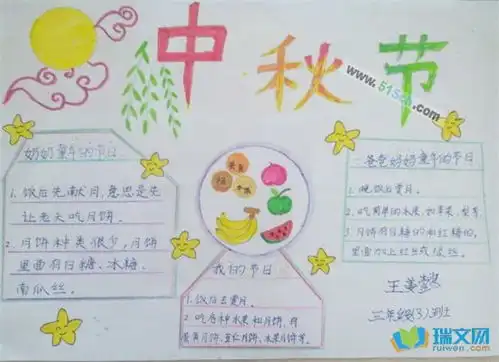 中秋节
www.515
奶奶童年的节日
1. 饭后先献月,意思是先
让老天吃月饼。
2. 月饼种类很少,月饼
里面有白糖、冰糖、
南瓜丝。
我的节日
1. 饭后去赏月。
2. 吃各种水果和月饼,有
蛋黄月饼、豆仁月饼、水果月饼等。
爸爸妈妈童年的节日
1. 晚饭后赏月。
2. 吃简单的水果,如苹果、梨等
3. 月饼有白糖的和红糖的,
里面加上红丝或绿丝。
三年级(3)班
瑞文网
ruiwen.com